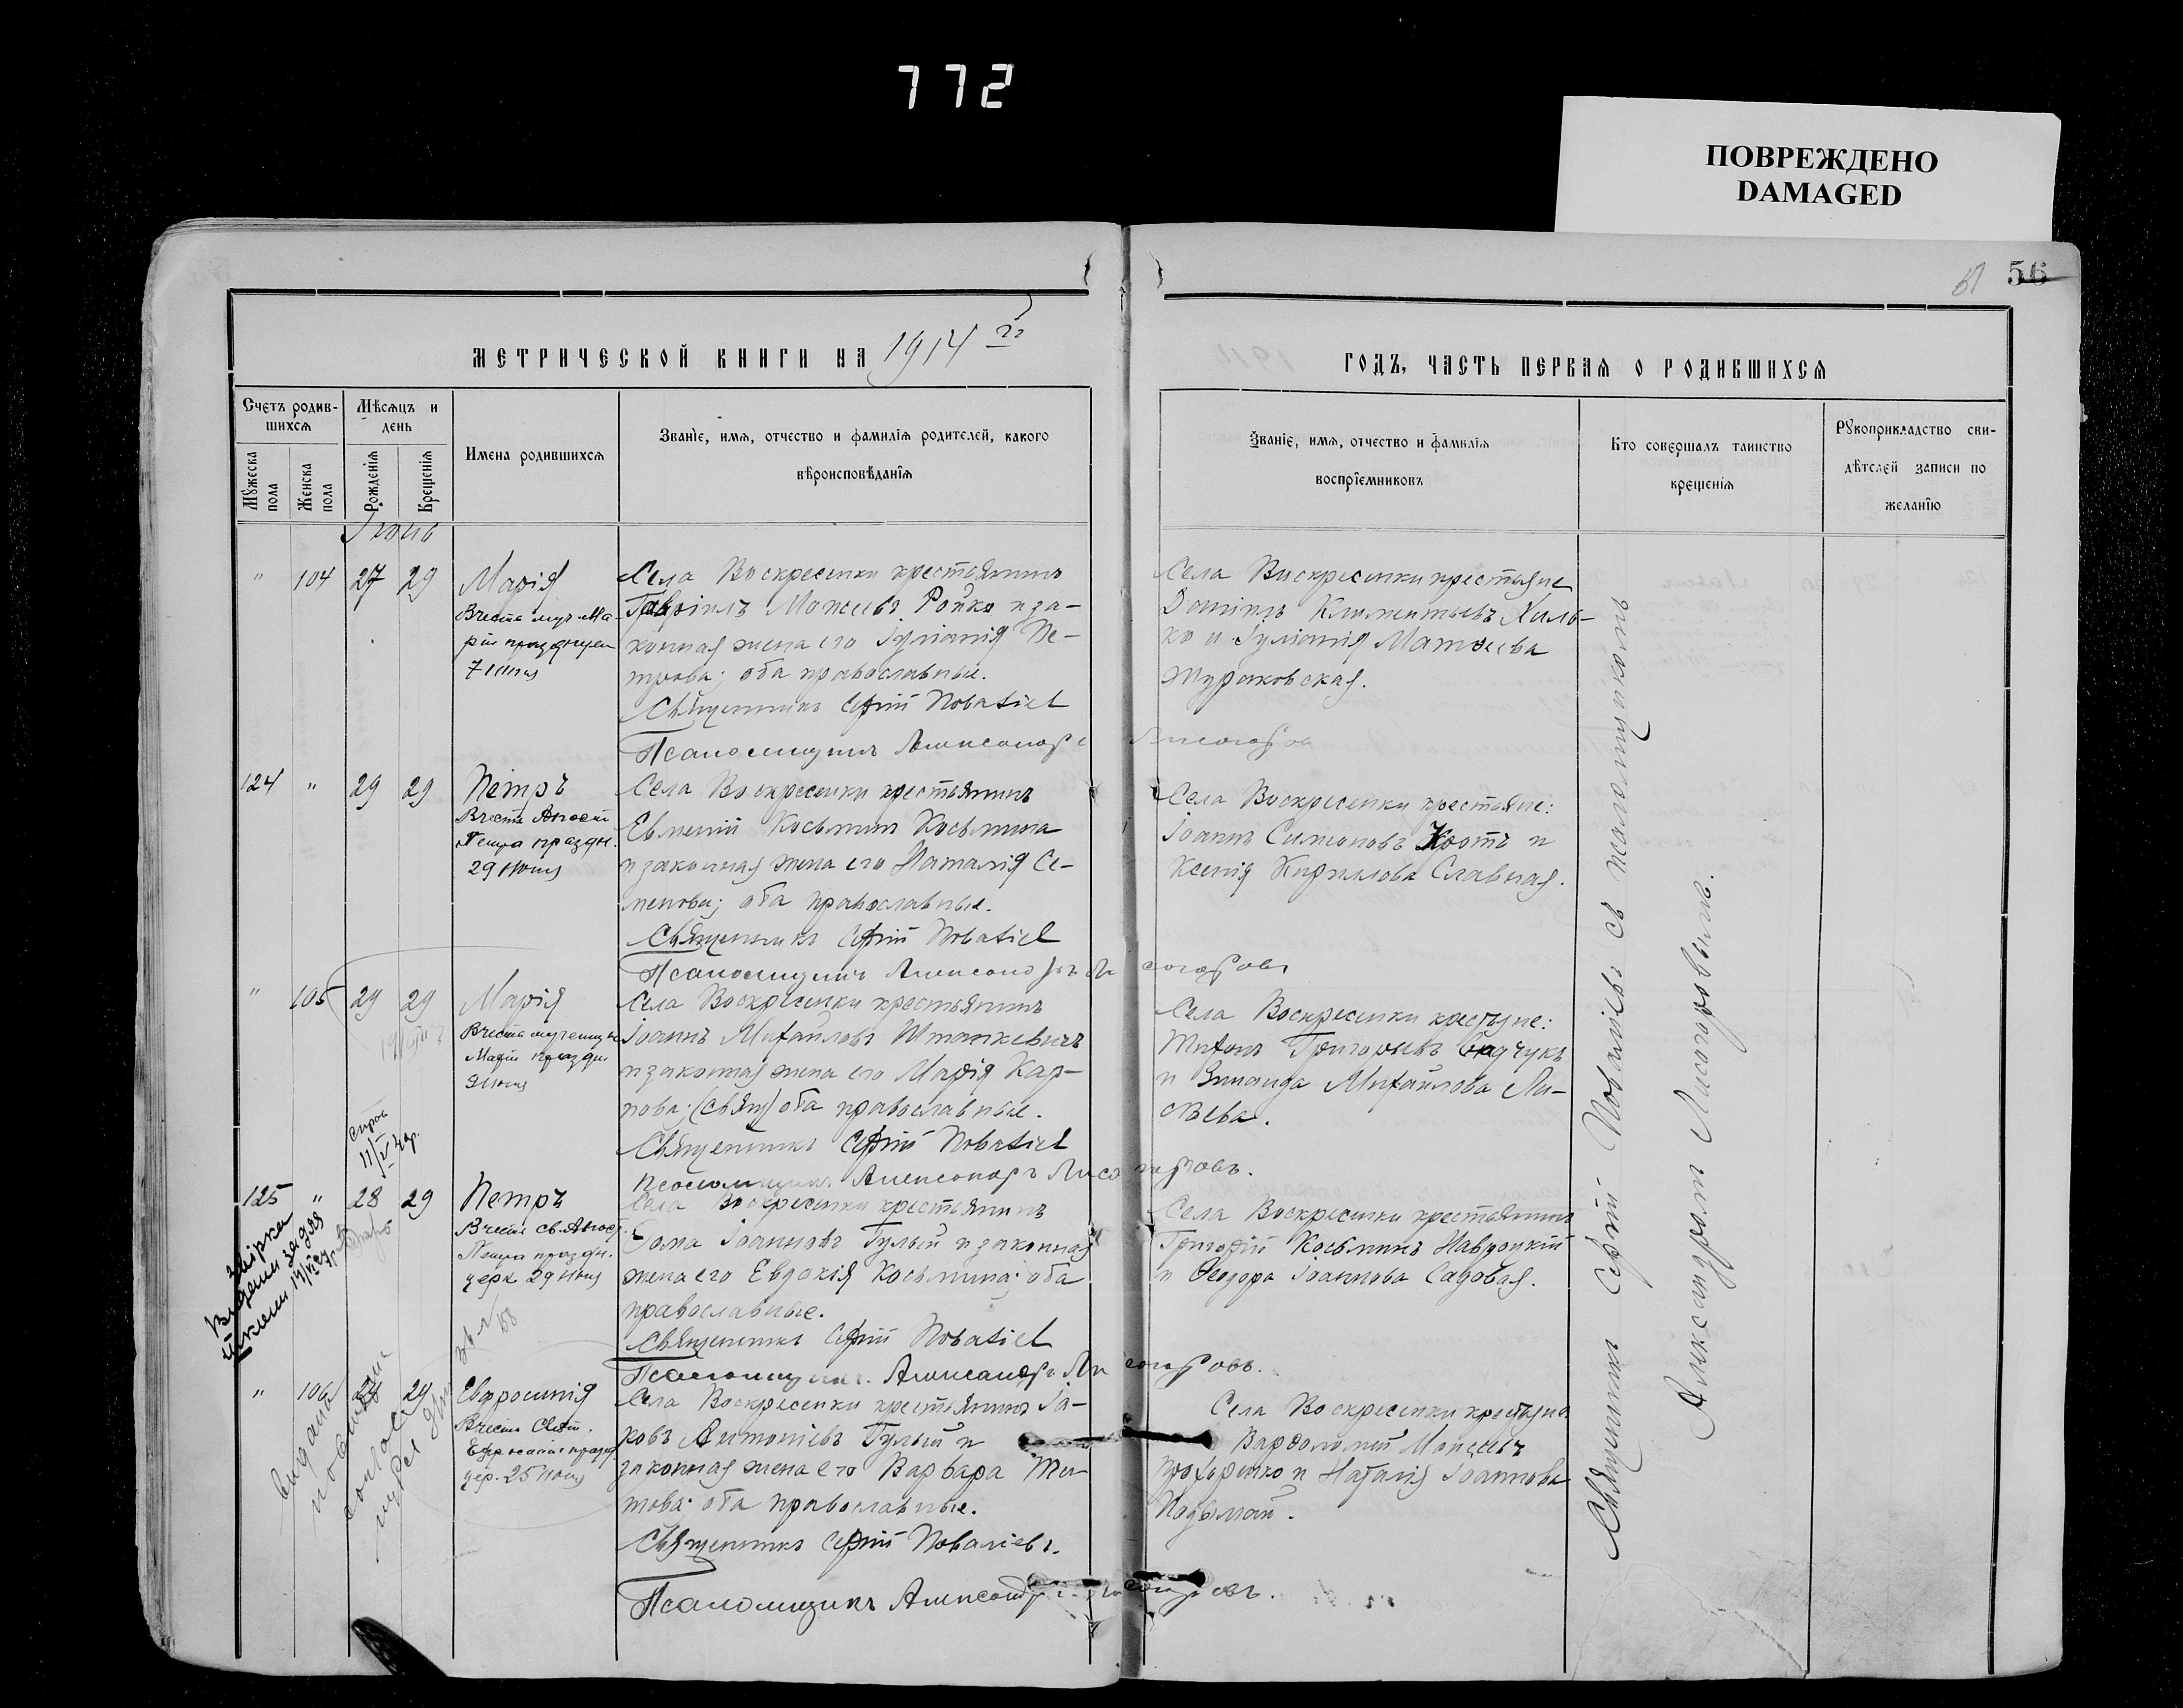 772
ПОВРЕЖДЕНО
DAMAGED
56
МЕТРИЧЕСКОЙ КНИГИ НА 1914
ГОДЪ, ЧАСТЬ ПЕРВАЯ О РОДИВШИХСЯ
Счетъ родив-
шихся
Мѣсяцъ и
день
Мужеска
пола
Женска
пола
Рожденія
Крещенія
Имена родившихся
Званіе, имя, отчество и фамилія родителей, какого
вѣроисповѣданія
Званіе, имя, отчество и фамилія
воспріемниковъ
Кто совершалъ таинство
крещенія
Рукоприкладство сви-
дѣтелей записи по
желанію
Іюнь
" 104 27 29 Марія
Села Воскресенки крестьянинъ
Гавріилъ Ройко и за-
конная жена его Іуліанія Пе-
трова; оба православные.
Священникъ Сергій Поваліевъ
Псаломщикъ Александръ Лисогоровъ
Села Воскресенки крестьяне
Климентьевъ Халь-
ко и Іуліанія Матѳеева
Жураковская.
124 " 29 29 Петръ
Въ честь Апост.
Петра праздн.
29 Іюня
Села Воскресенки крестьянинъ
Евменій Косьминъ Косьмина
и законная жена его Наталія Се-
менова; оба православные.
Священникъ Сергій Поваліевъ
Псаломщикъ Александръ Лисогоровъ
Села Воскресенки крестьяне:
Іоаннъ Симоновъ Кротъ и
Ксенія Кириллова Славная.
" 105 29 29 Марія
Въ честь мученицы
Маріи праздн.
Іюня
Села Воскресенки крестьянинъ
Іоаннъ Михайловъ Штанкевичъ
и законная жена его Марія Кар-
пова; оба православные.
Священникъ Сергій Поваліевъ
Псаломщикъ Александръ Лисогоровъ.
Села Воскресенки крестьяне:
Тихонъ Григорьевъ
и Зинаида Михайлова Ли-
сѣева.
125 " 28 29 Петръ
Въ честь св. Апост.
Петра праздн.
церк 29 Іюня
Села Воскресенки крестьянинъ
Ѳома Іоанновъ Гулый и законная
жена его Евдокія Косьмина; оба
православные.
Священникъ Сергій Поваліевъ
Псаломщикъ Александръ Лисогоровъ.
Села Воскресенки крестьянинъ
Григорій Косьминъ Навроцкій
и Ѳеодора Іоаннова Садовая.
" 106 29 Евфросинія
Въ честь Свят.
Евфросиніи празд.
цер. 25 Іюня
Села Воскресенки крестьянинъ Іа-
ковъ Антоніевъ Гулый и
законная жена его Варвара Ти-
това; оба православные.
Священникъ Сергій Поваліевъ.
Псаломщикъ Александръ Лисогоровъ.
Села Воскресенки крестьяне
Варѳоломей Моисеевъ
Прохоренко и Наталія Іоаннова
Подымай.
Священникъ Сергій Поваліевъ съ псаломщикомъ
Александромъ Лисогоровымъ.